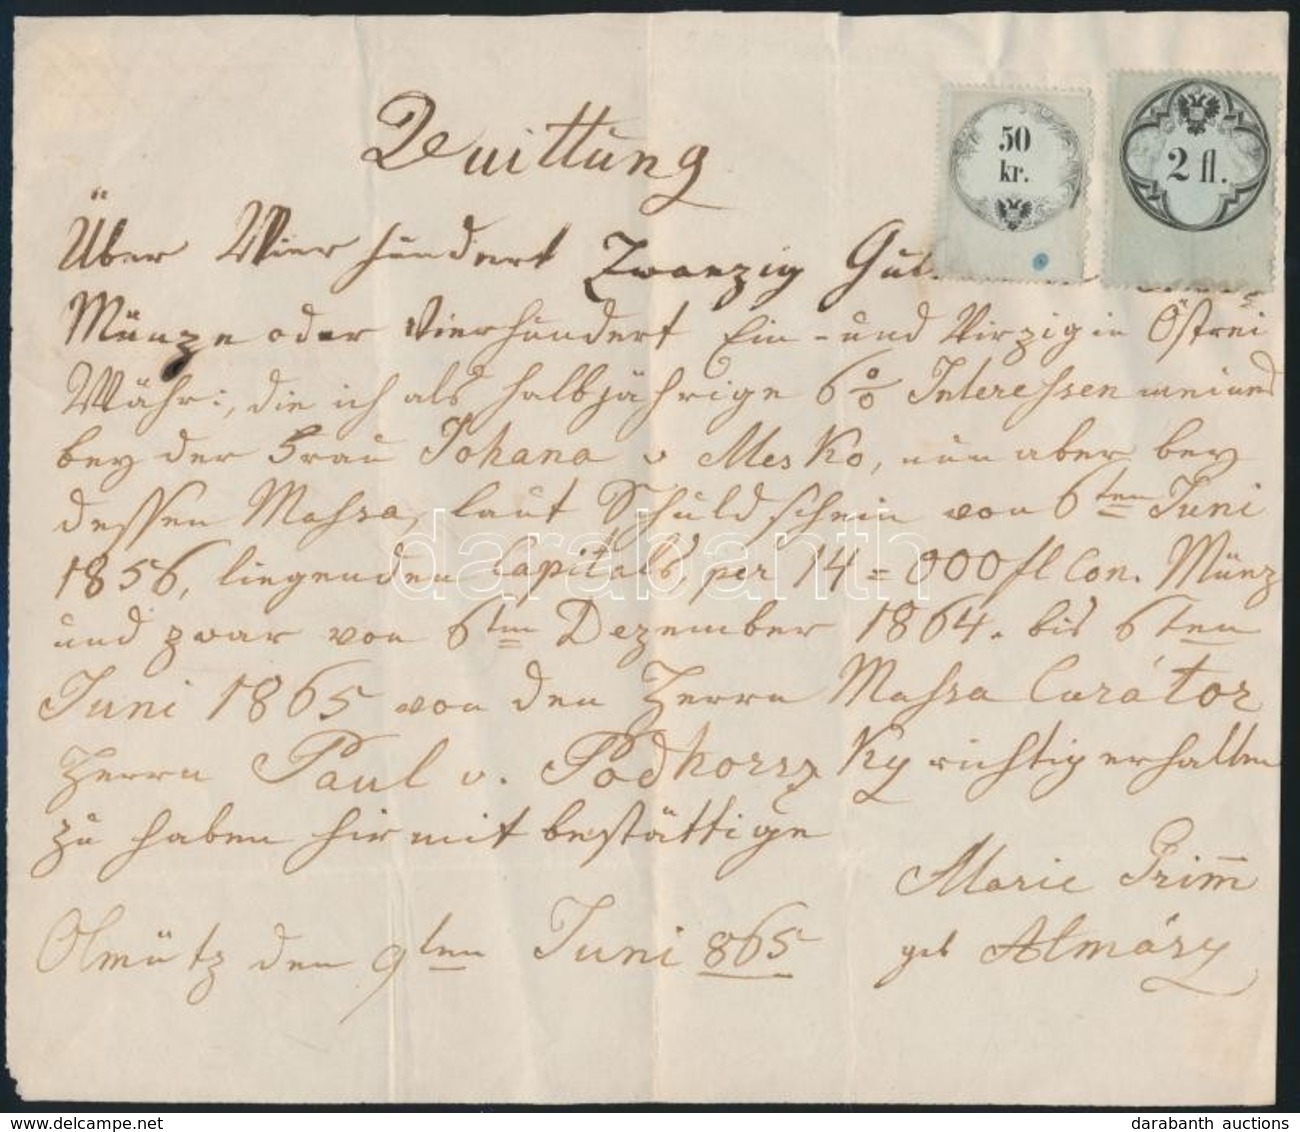 Quittung
50
kr.
2 fl.
Über Vierhundert Zwanzig
Münze oder Vierhundert Ein- und Virzig in Östrei
Währ:, die ich als halbjährige 6% Interehsen meines
bey der Frau Johana v Mesko, nun aber bey
dessen Mahsa, laut Schuldschein von 6ten Juni
1856, liegenden Capitals, per 14=000 fl Con. Münz
und zwar von 6ten Dezember 1864. bis 6ten
Juni 1865 von den Herrn Mahsa Curátor
Herrn Paul v. Podhorszky richtig erhalten
zu haben hirmit bestättige
Marie Grim̄
Olmütz den 9ten Juni 865
geb Almásy
darabanth
delcampe.net
darabanth auctions